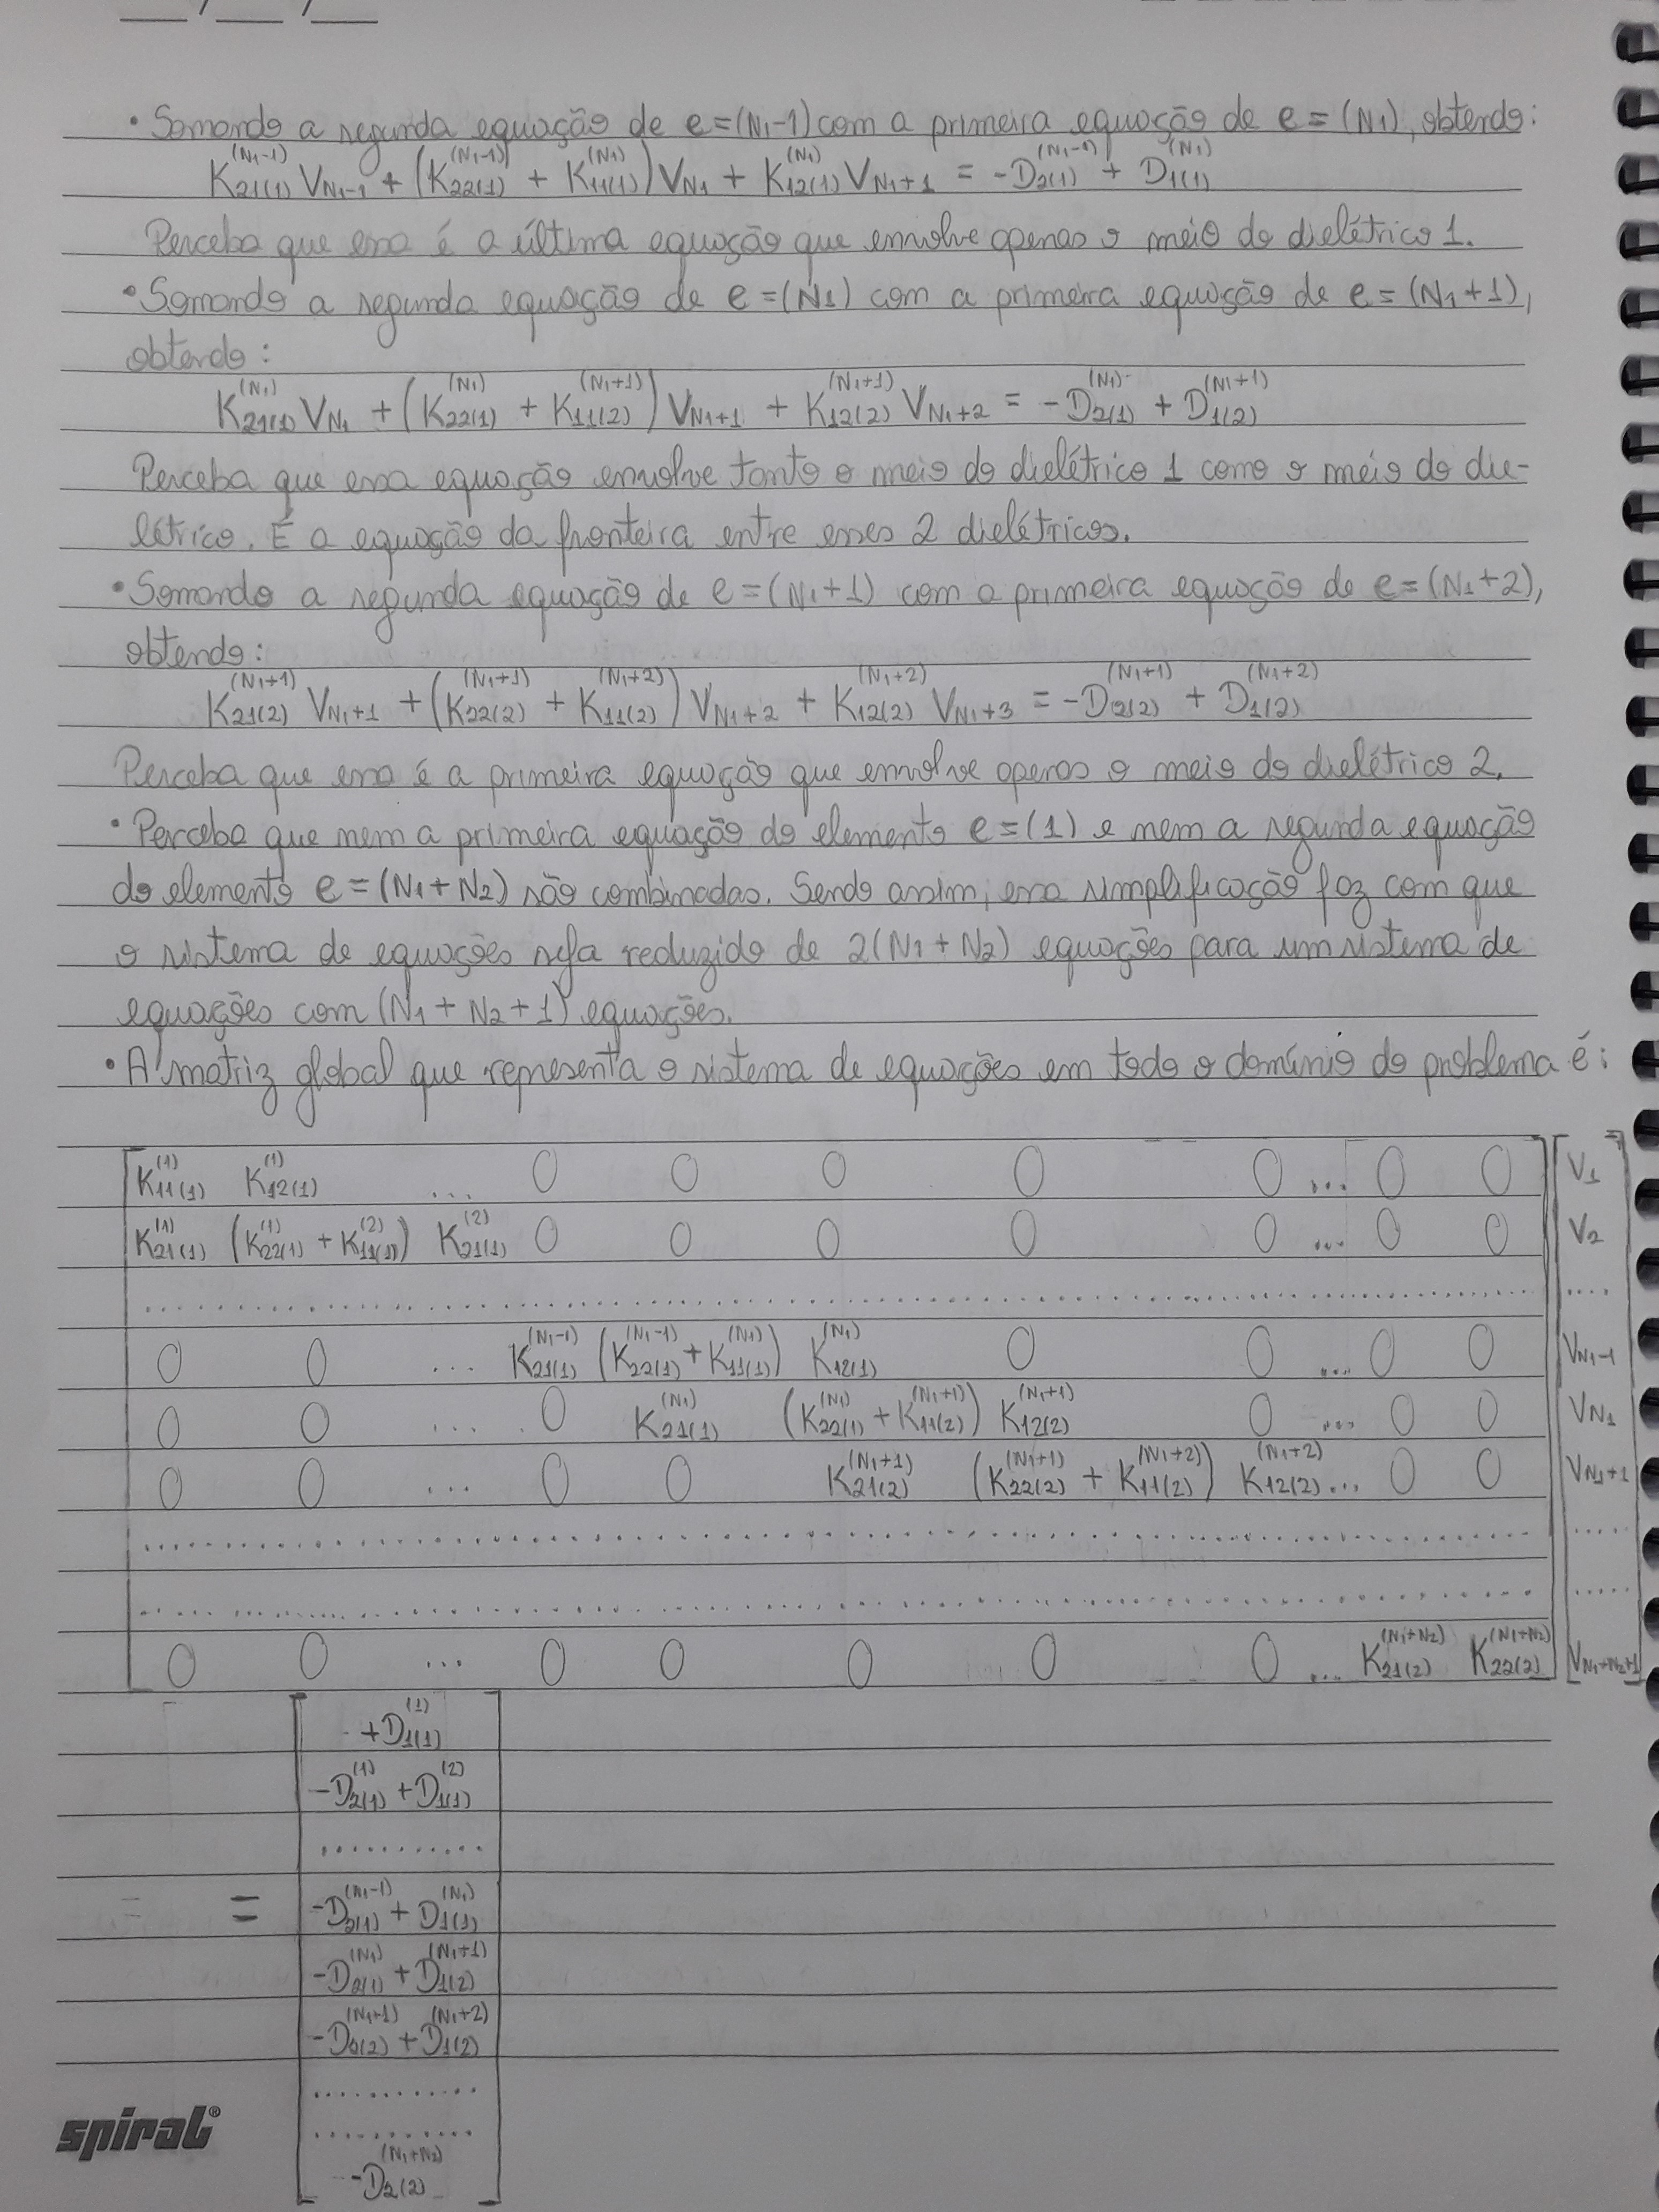 __/__/__
• Somando a segunda equação de e=(N₁-1) com a primeira equação de e=(N₁), obtendo:
K₂₁₍₁₎^(N₁-1) V_N₁-1 + (K₂₂₍₁₎^(N₁-1) + K₁₁₍₁₎^(N₁)) V_N₁ + K₁₂₍₁₎^(N₁) V_N₁+1 = -D₂₍₁₎^(N₁-1) + D₁₍₁₎^(N₁)
Perceba que essa é a última equação que envolve apenas o meio do dielétrico 1.
• Somando a segunda equação de e=(N₁) com a primeira equação de e=(N₁+1),
obtendo:
K₂₁₍₁₎^(N₁) V_N₁ + (K₂₂₍₁₎^(N₁) + K₁₁₍₂₎^(N₁+1)) V_N₁+1 + K₁₂₍₂₎^(N₁+1) V_N₁+2 = -D₂₍₁₎^(N₁) + D₁₍₂₎^(N₁+1)
Perceba que essa equação envolve tanto o meio do dielétrico 1 como o meio do die-
létrico. É a equação da fronteira entre esses 2 dielétricos.
• Somando a segunda equação de e=(N₁+1) com a primeira equação de e=(N₁+2),
obtendo:
K₂₁₍₂₎^(N₁+1) V_N₁+1 + (K₂₂₍₂₎^(N₁+1) + K₁₁₍₂₎^(N₁+2)) V_N₁+2 + K₁₂₍₂₎^(N₁+2) V_N₁+3 = -D₂₍₂₎^(N₁+1) + D₁₍₂₎^(N₁+2)
Perceba que essa é a primeira equação que envolve apenas o meio do dielétrico 2.
• Perceba que nem a primeira equação do elemento e=(1) e nem a segunda equação
do elemento e=(N₁+N₂) são combinadas. Sendo assim, essa simplificação faz com que
o sistema de equações seja reduzido de 2(N₁+N₂) equações para um sistema de
equações com (N₁+N₂+1) equações.
• A matriz global que representa o sistema de equações em todo o domínio do problema é:
K₁₁₍₁₎^(1) K₁₂₍₁₎^(1) ... 0 0 0 0 0 ... 0 0 V₁
K₂₁₍₁₎^(1) (K₂₂₍₁₎^(1) + K₁₁₍₁₎^(2)) K₂₁₍₁₎^(2) 0 0 0 0 0 ... 0 0 V₂
........ ....
0 0 ... K₂₁₍₁₎^(N₁-1) (K₂₂₍₁₎^(N₁-1) + K₁₁₍₁₎^(N₁)) K₁₂₍₁₎^(N₁) 0 0 ... 0 0 V_N₁-1
0 0 ... 0 K₂₁₍₁₎^(N₁) (K₂₂₍₁₎^(N₁) + K₁₁₍₂₎^(N₁+1)) K₁₂₍₂₎^(N₁+1) 0 ... 0 0 V_N₁
0 0 ... 0 0 K₂₁₍₂₎^(N₁+1) (K₂₂₍₂₎^(N₁+1) + K₁₁₍₂₎^(N₁+2)) K₁₂₍₂₎^(N₁+2) ... 0 0 V_N₁+1
........ .....
........ .....
0 0 ... 0 0 0 0 0 ... K₂₁₍₂₎^(N₁+N₂) K₂₂₍₂₎^(N₁+N₂) V_N₁+N₂+1
+D₁₍₁₎^(1)
-D₂₍₁₎^(1) + D₁₍₁₎^(2)
...........
= -D₂₍₁₎^(N₁-1) + D₁₍₁₎^(N₁)
-D₂₍₁₎^(N₁) + D₁₍₂₎^(N₁+1)
-D₂₍₂₎^(N₁+1) + D₁₍₂₎^(N₁+2)
...........
...........
-D₂₍₂₎^(N₁+N₂)
spiral®